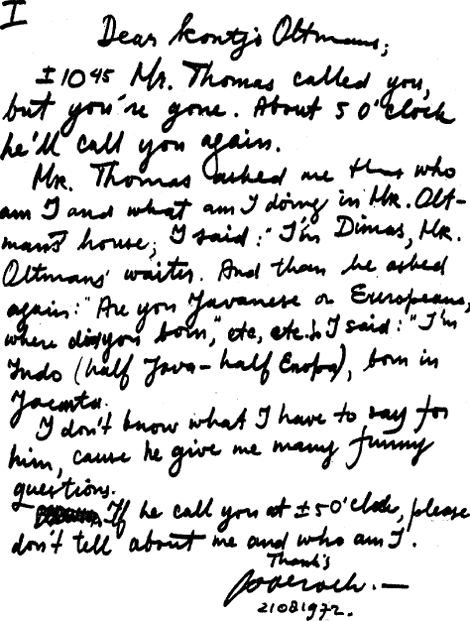 I
Dear Kontjo Oltmans,
± 1045 Mr. Thomas called you,
but you're gone. About 5 o'clock
he'll call you again.
Mr. Thomas asked me thus who
am I and what am I doing in Mr. Olt-
mans' house; I said: "I'm Dimas, Mr.
Oltmans' waiter. And than he asked
again: "Are you Javanese or Europeans,
where did you born," etc, etc. I said: "I'm
Indo (half Java - half Eropa), born in
Jacarta.
I don't know what I have to say for
him, cause he give me many funny
questions.
If he call you at ± 5 o'clock, please
don't tell about me and who am I.
Thank's
21081972.